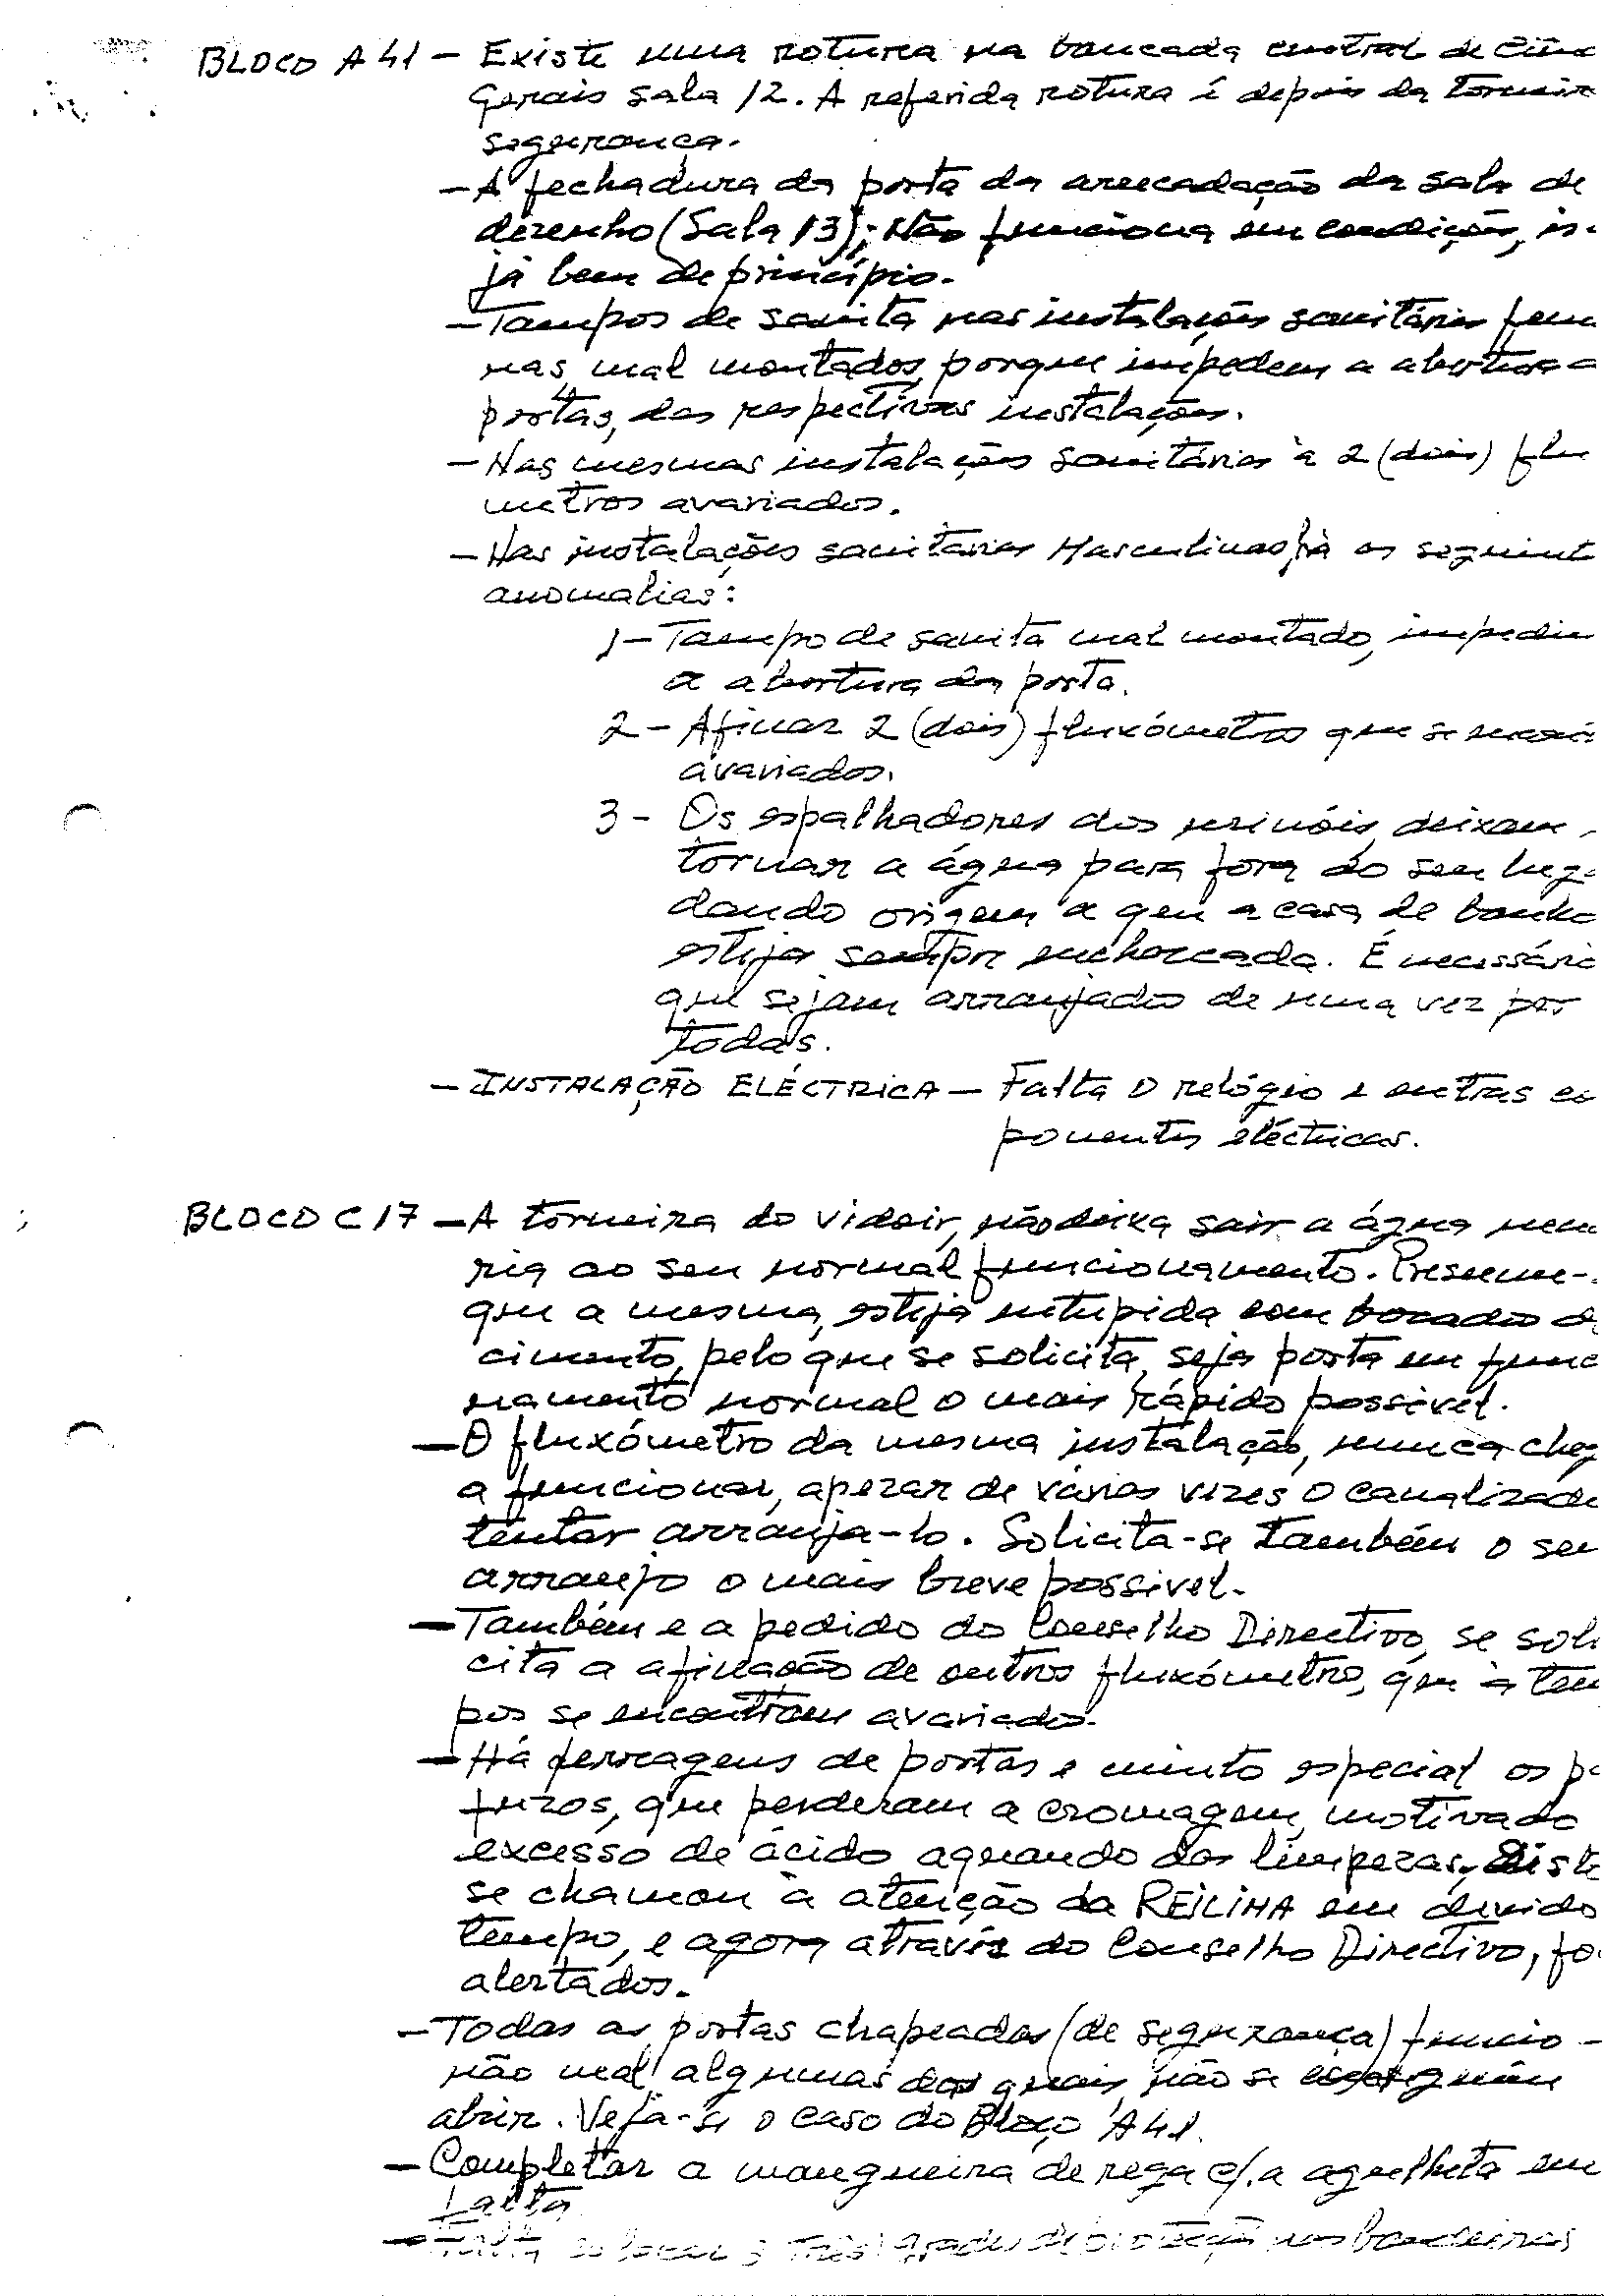 BLOCO A41 - Existe uma rotura na bancada central de Ciên
Gerais sala 12. A referida rotura é depois da torneir
segurança.
- A fechadura da porta da arrecadação da sala de
dezenho (Sala 13); Não funciona em condições, is-
já bem de princípio.
- Tampos de sanita nas instalações sanitárias femi
nas, mal montados, porque impedem a abertura
portas, das respectivas instalações.
- Nas mesmas instalações sanitárias à 2 (dois) flu
metros avariados.
- Nas instalações sanitárias Masculinas, há as seguint
anomalias:
1- Tampo de sanita mal montado, impedin
a abertura da porta.
2 - Afinar 2 (dois) fluxómetros que se
avariados.
3 - Os espalhadores dos urinóis, deixam
tornar a água para fora do seu luga
dando origem a que a casa de banho
esteja sempre encharcada. É necessário
que sejam arranjados de uma vez por
todas.
- INSTALAÇÃO ELÉCTRICA - Falta o relógio e outras co
ponentes eléctricas.
BLOCO C17 - A torneira do vidoir, não deixa sair a água nece
ria ao seu normal funcionamento. Presume-
que a mesma, esteja entupida com bocados d
cimento, pelo que se solicita, seja posta em func
namento normal o mais rápido possivel.
- O fluxómetro da mesma instalação, nunca cheg
a funcionar, apezar de várias vezes o canalizado
tentar arranja-lo. Solicita-se também o seu
arranjo o mais breve possivel.
- Também e a pedido do Conselho Directivo, se soli
cita a afinação de outros fluxómetro, que à tem
pos se encontram avariados.
- Há ferragens de portas e muito especial os pa
fuzos, que perderam a cromagem, motivado
excesso de ácido aquando das limpezas, Disto
se chamou à atenção da REILIMA em devido
tempo, e agora através do Conselho Directivo, fo
alertados.
- Todas as portas chapeadas (de segurança) funcio -
não mal, algumas das quais, não se conseguem
abrir. Veja-se o caso do Bloco A41.
- Completar a mangueira de rega c/. a agulheta em
falta
- Falta colocar 3 três grades de protecção nas bandeiras